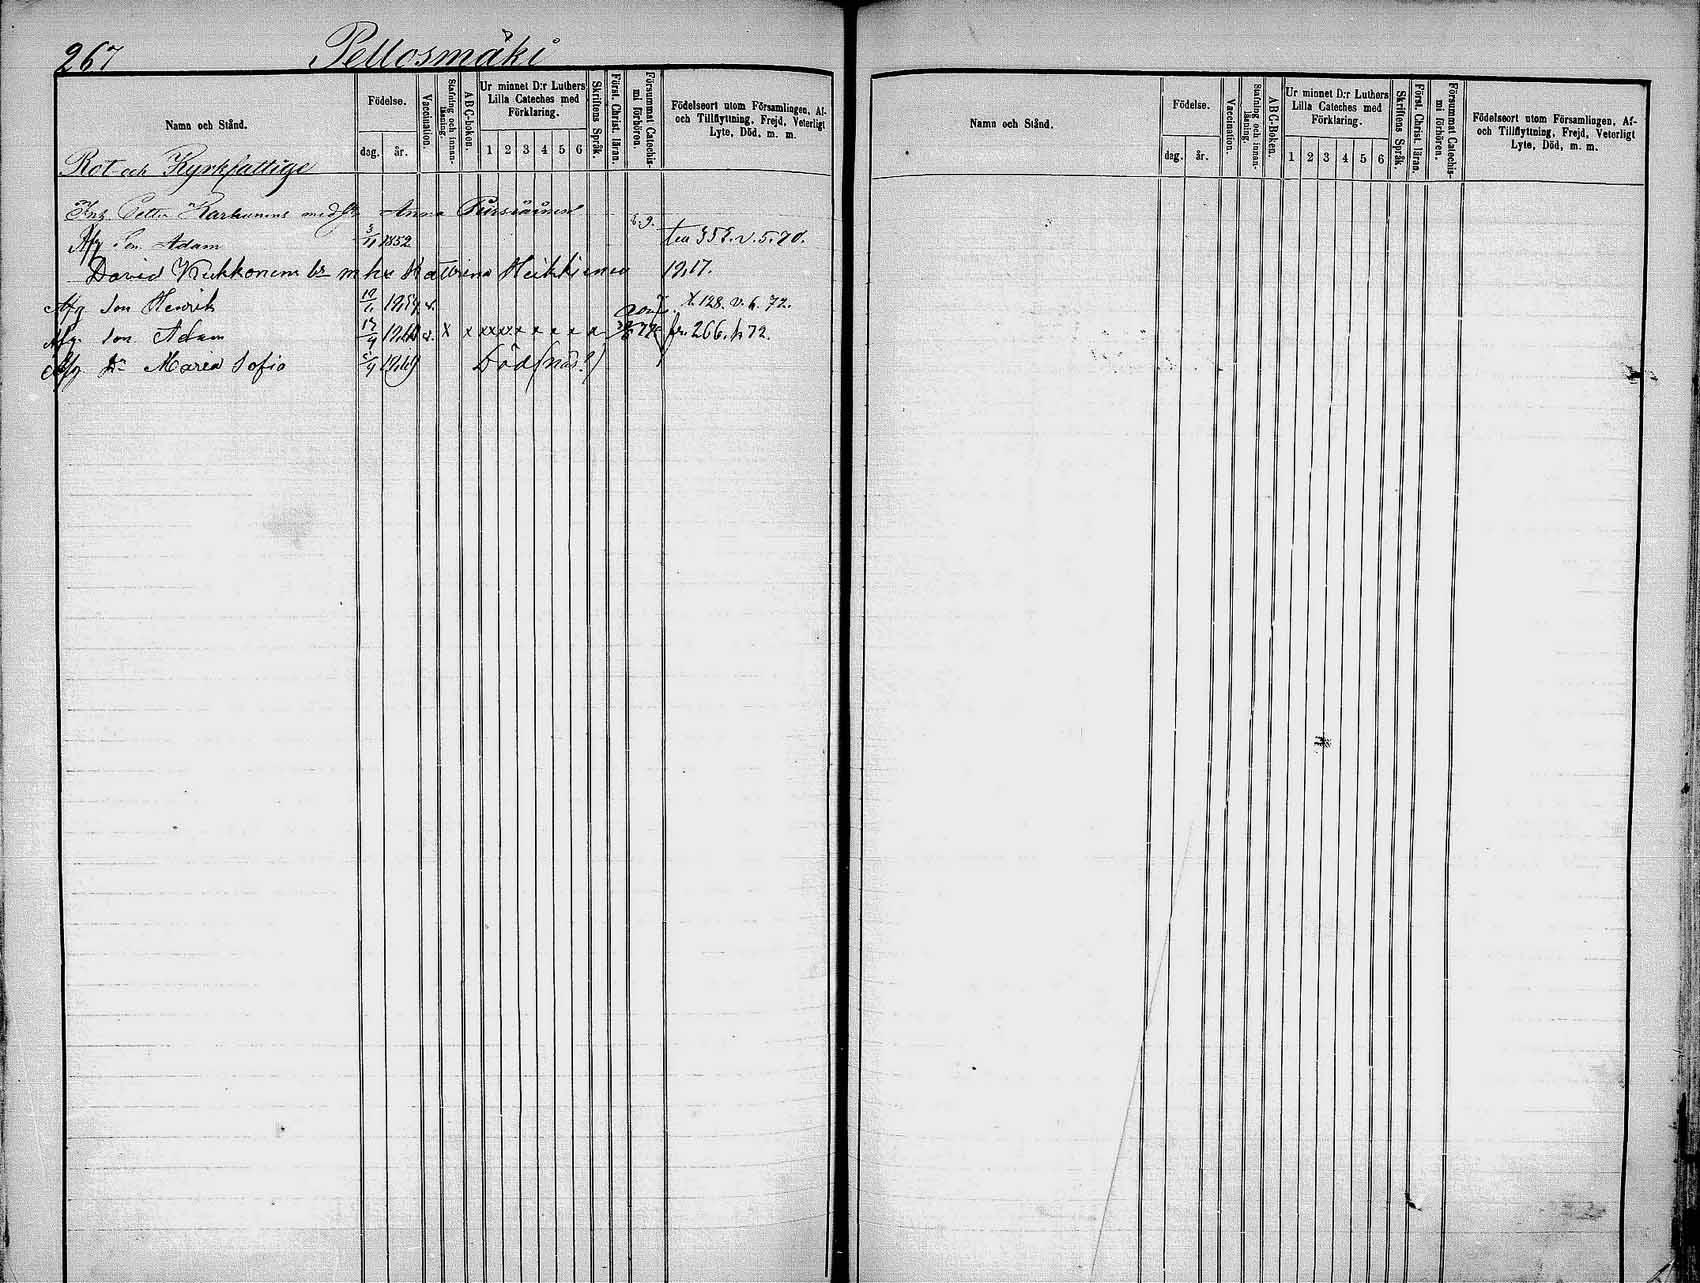 267 Pellosmäki
Namn och Stånd.
Födelse.
dag. år.
Vaccination.
Stafning och innanläsning.
ABC-boken.
Ur minnet D:r Luthers
Lilla Cateches med
Förklaring.
1 2 3 4 5 6
Skriftens Språk.
Först. Christ. läran.
Försummat Catechismi förhören.
Födelseort utom Församlingen, Af-
och Tillflyttning, Frejd, Veterligt
Lyte, Död, m. m.
Rot- och Kyrkfattige
Petter Karhunens med Anna
Son Adam 3/11 1852 v. 5. 70.
David Kukkonens Katarina Heikkinen 17.
Afg. Son Henrik v. 128. v. 6. 72.
Afg. Son Adam v. x x x x x x x x x x fr. 266. 72.
Afg. Dr Maria Sofia Död
Namn och Stånd.
Födelse.
dag. år.
Vaccination.
Stafning och innanläsning.
ABC-Boken.
Ur minnet D:r Luthers
Lilla Cateches med
Förklaring.
1 2 3 4 5 6
Skriftens Språk.
Först. Christ. läran.
Försummat Catechismi förhören.
Födelseort utom Församlingen, Af-
och Tillflyttning, Frejd, Veterligt
Lyte, Död, m. m.